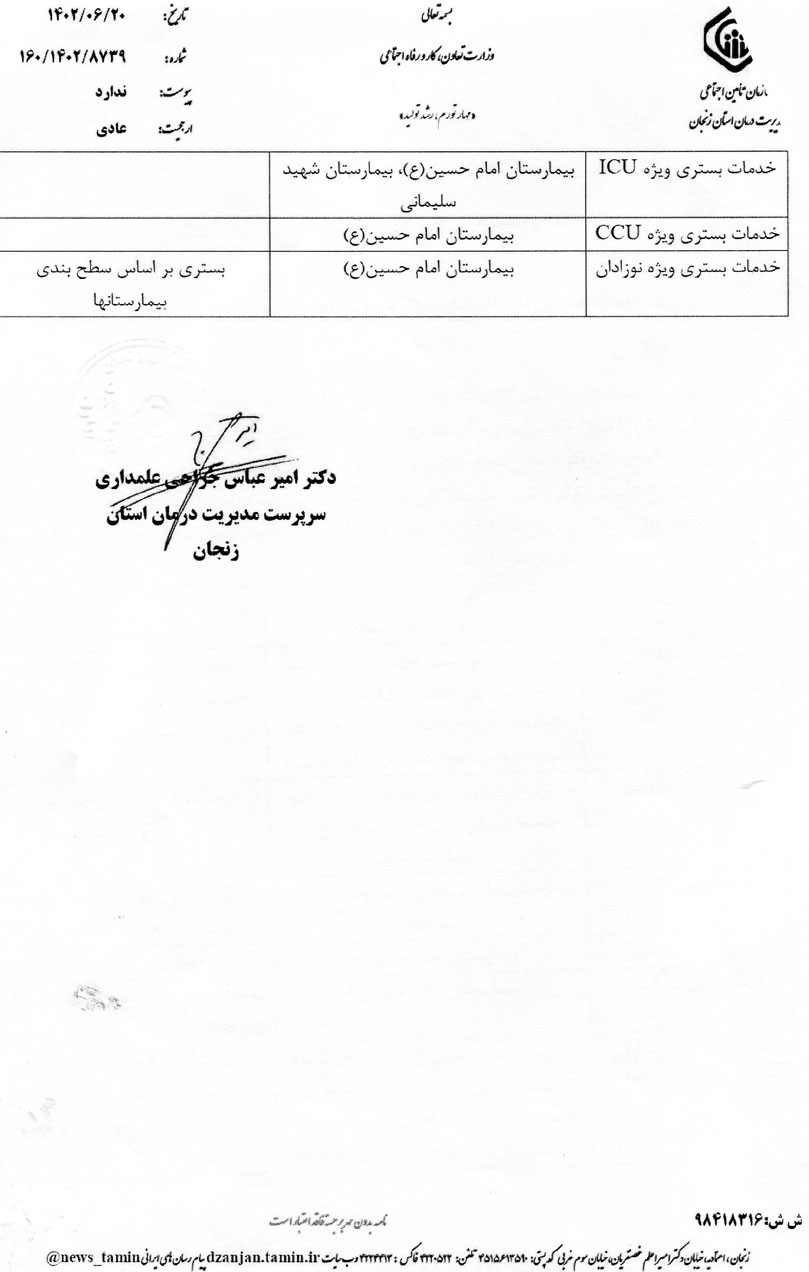 بسمه تعالی
وزارت تعاون، کار و رفاه اجتماعی
«مهار تورم، رشد تولید»
سازمان تأمین اجتماعی
مدیریت درمان استان زنجان
تاریخ: ۱۴۰۲/۰۶/۲۰
شماره: ۱۶۰/۱۴۰۲/۸۷۳۹
پیوست: ندارد
ارجحیت: عادی
خدمات بستری ویژه ICU
بیمارستان امام حسین(ع)، بیمارستان شهید
سلیمانی
خدمات بستری ویژه CCU
بیمارستان امام حسین(ع)
خدمات بستری ویژه نوزادان
بیمارستان امام حسین(ع)
بستری بر اساس سطح بندی
بیمارستانها
دکتر امیر عباس جراحی علمداری
سرپرست مدیریت درمان استان
زنجان
ش ش: ۹۸۴۱۸۳۱۶
نامه بدون مهر برجسته فاقد اعتبار است
زنجان، اعتمادیه، خیابان دکتر امیر اعلم غضنفریان، خیابان سوم غربی کد پستی: ۴۵۱۵۶۱۳۵۹۰ تلفن: ۴۲۲۰۵۲۲ فاکس: ۴۲۲۴۴۱۳ وب سایت dzanjan.tamin.ir پیام رسان های ایرانی @news_tamin